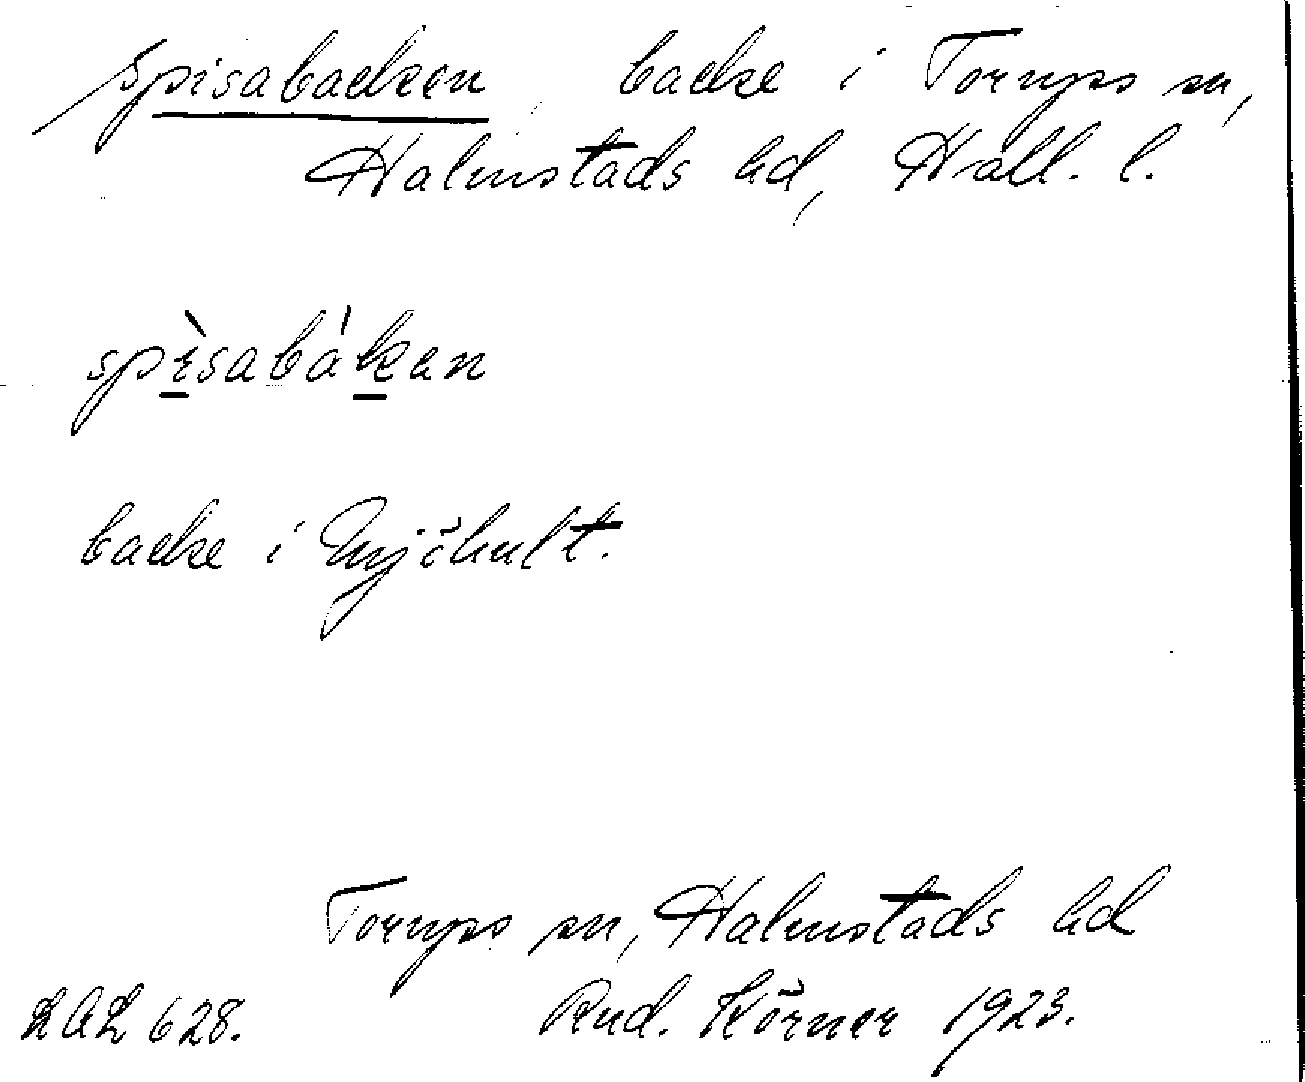 Spisabacken backe i Torups sn,
Halmstads hd, Hall. l.
spìsabákan
backe i Mjöhult.
Torups sn, Halmstads hd
LAL 628. Rud. Körner 1923.